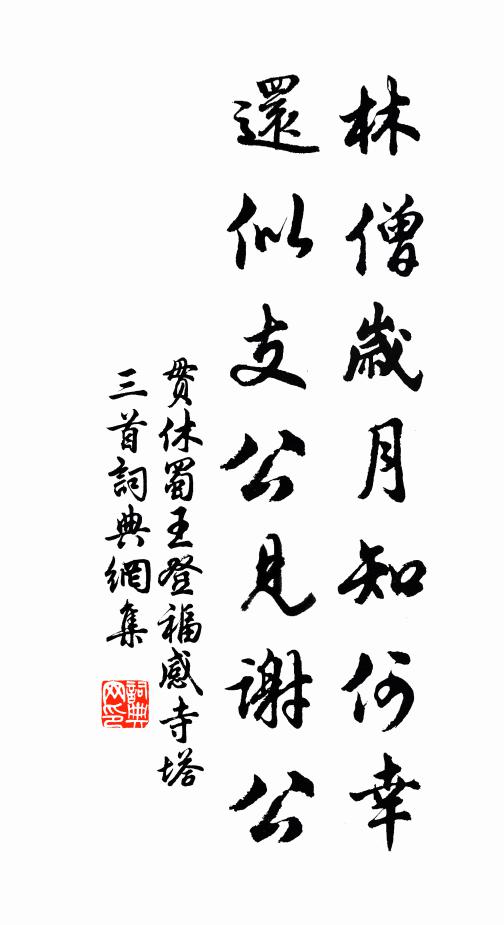 林僧歲月知何幸
還似支公見謝公
貫休蜀王登福感寺塔
三首詞典網集
詞典
網印